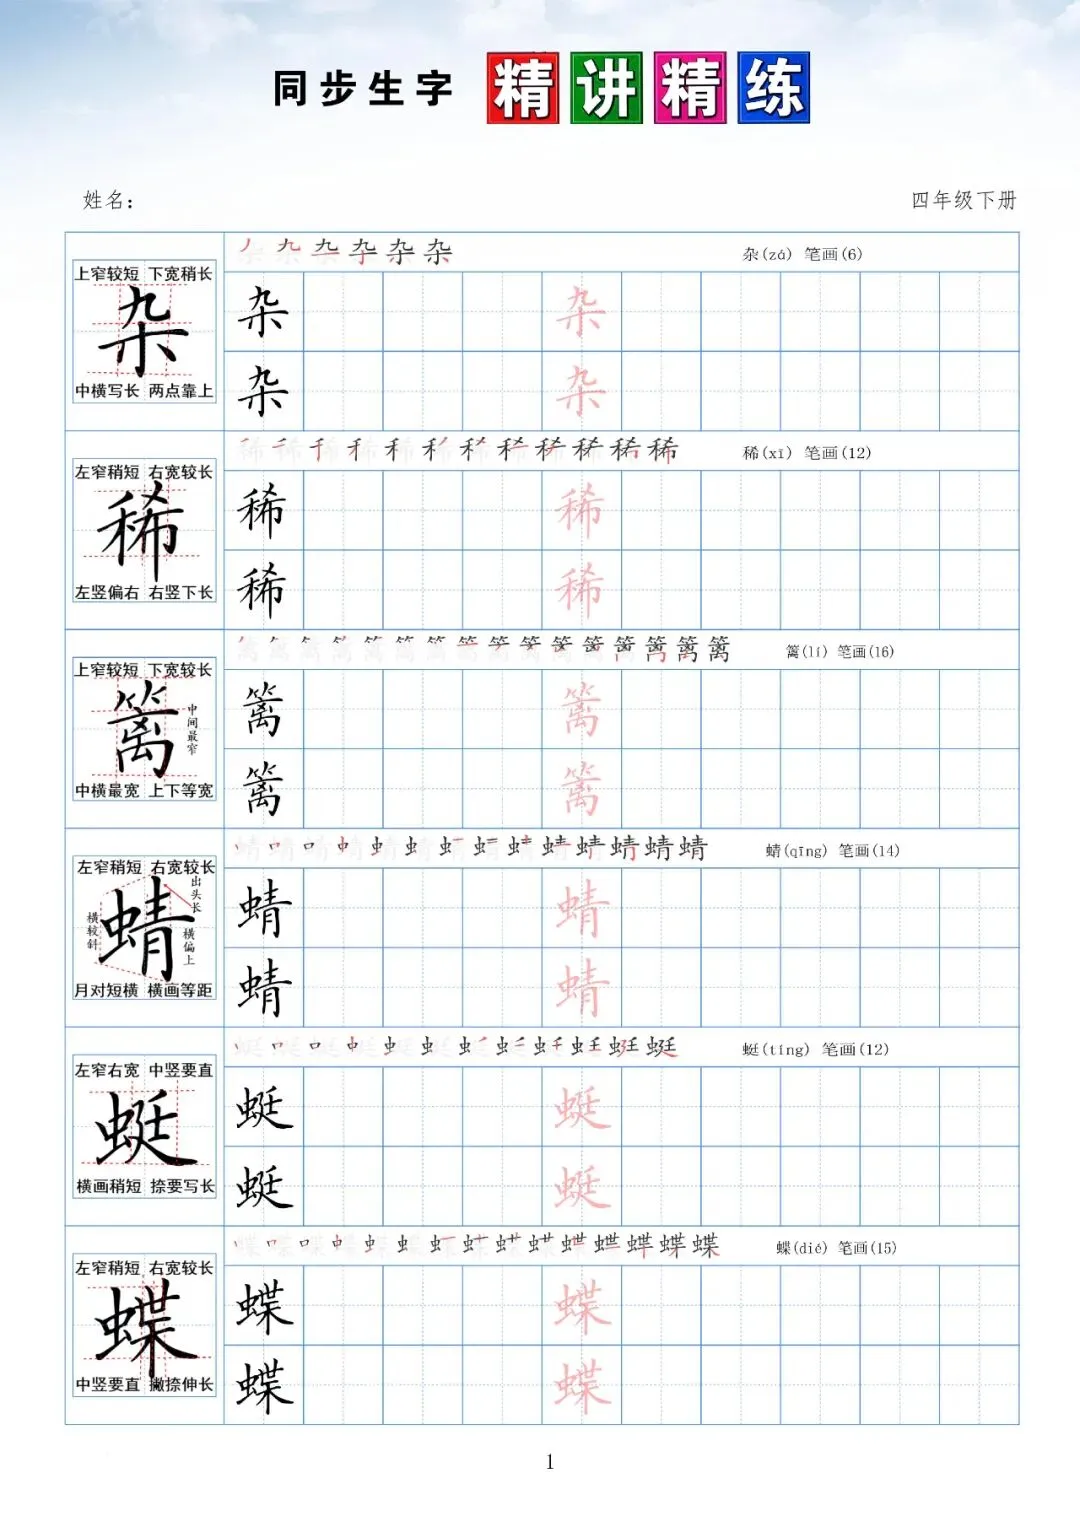 同步生字 精讲精练
姓名： 四年级下册
杂(zá) 笔画(6)
上窄较短 下宽稍长
杂 杂 杂
中横写长 两点靠上
杂 杂
稀(xī) 笔画(12)
左窄稍短 右宽较长
稀 稀 稀
左竖偏右 右竖下长
稀 稀
篱(lí) 笔画(16)
上窄较短 下宽较长
篱 篱 篱
中间最窄
中横最宽 上下等宽
篱 篱
蜻(qīng) 笔画(14)
左窄稍短 右宽较长
出头长
蜻 蜻 蜻
横较斜
横偏上
月对短横 横画等距
蜻 蜻
蜓(tíng) 笔画(12)
左窄右宽 中竖要直
蜓 蜓 蜓
横画稍短 捺要写长
蜓 蜓
蝶(dié) 笔画(15)
左窄稍短 右宽较长
蝶 蝶 蝶
中竖要直 撇捺伸长
蝶 蝶
1